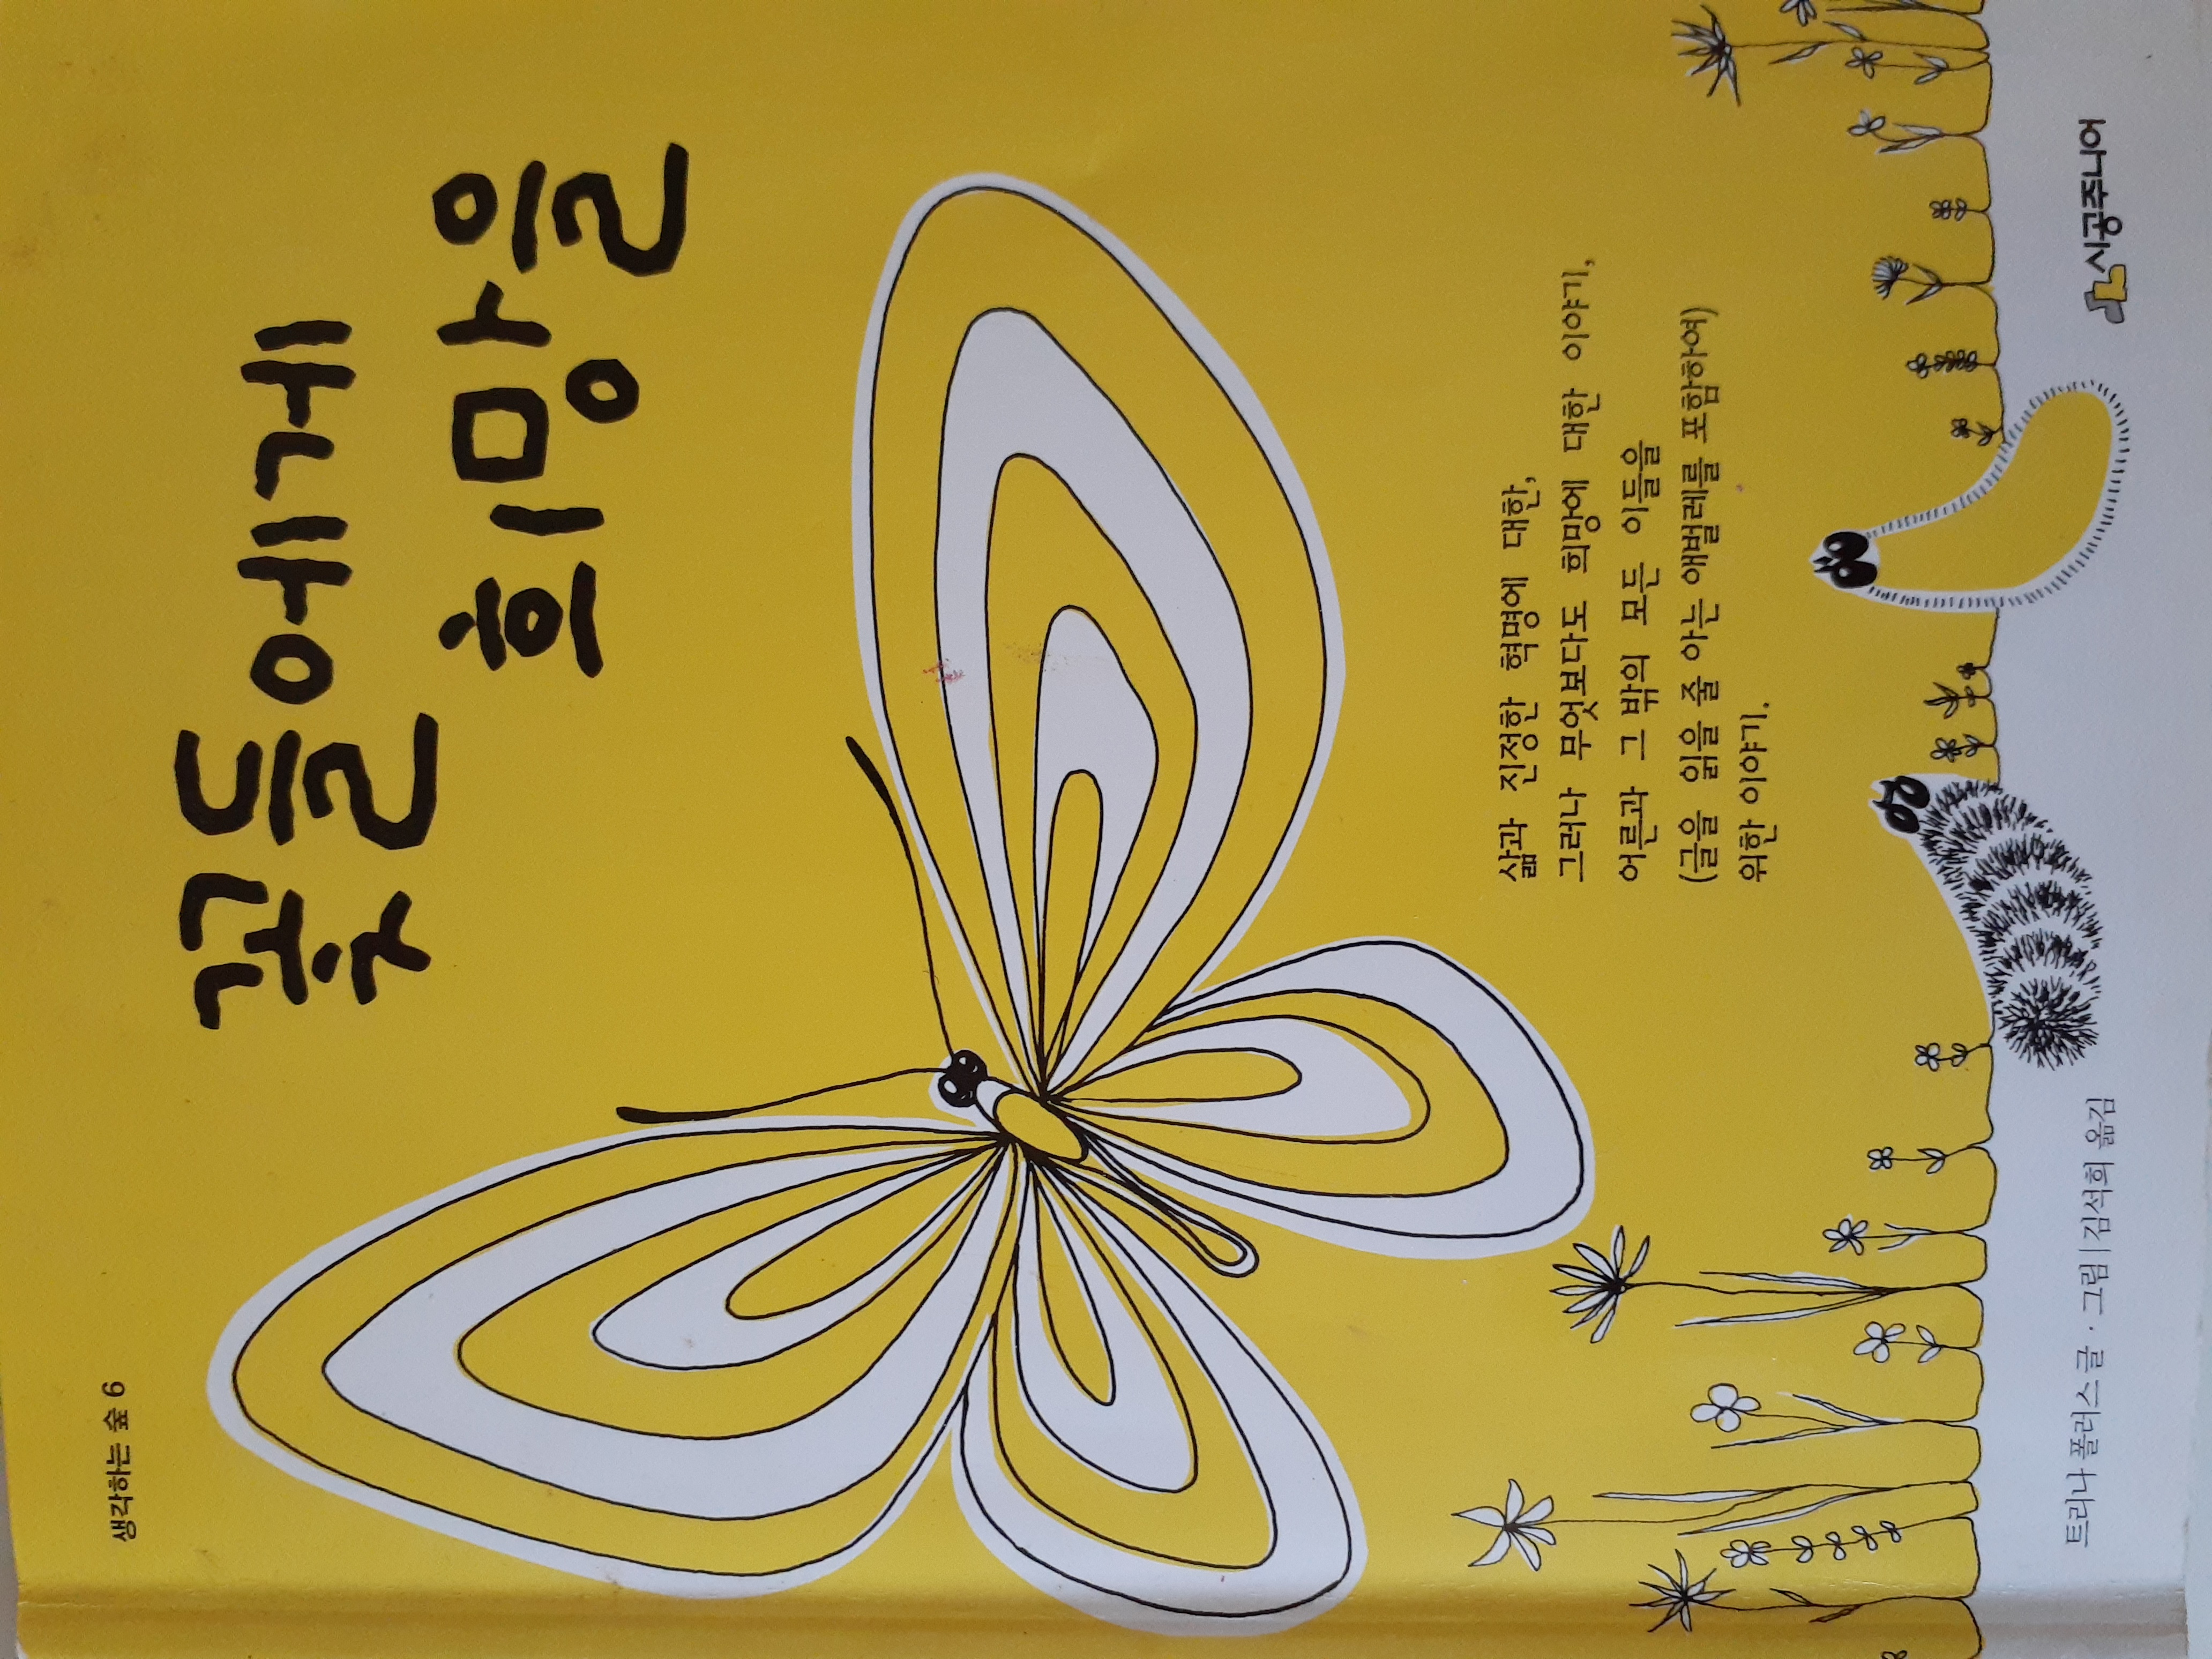 생각하는 숲 6
꽃들에게
희망을
삶과 진정한 혁명에 대한,
그러나 무엇보다도 희망에 대한 이야기,
어른과 그 밖의 모든 이들을
(글을 읽을 줄 아는 애벌레를 포함하여)
위한 이야기.
트리나 폴러스 글·그림 | 김석희 옮김
시공주니어